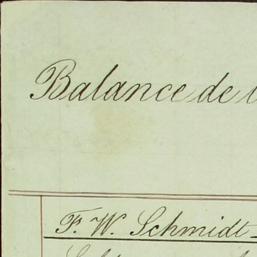 Balance de
F. W. Schmidt